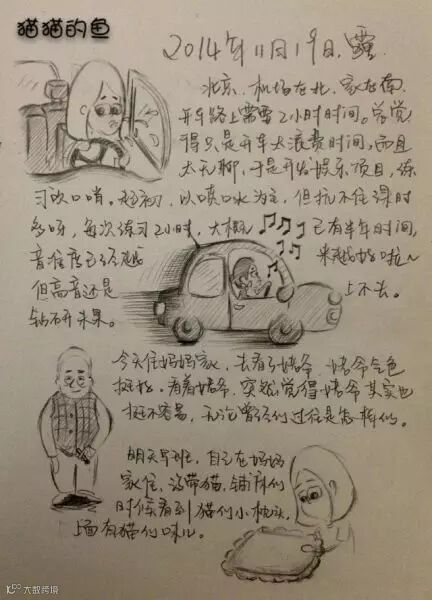 猫猫的鱼
2014年11月19日.霾.
北京.机场在北.家在南.
开车路上需要2小时时间。常觉
得只是开车太浪费时间,而且
太无聊.于是开发娱乐项目,练
习吹口哨。起初,以喷口水为主,但抗不住课时
多呀,每次练习2小时,大概 已有半年时间,
音准度已经越 来越好啦~
但高音还是 上不去。
钻研未果。
今天住妈妈家,去看了姥爷.姥爷气色
挺好.看着姥爷.突然觉得姥爷其实也
挺不容易,无论曾经的过往是怎样的。
明天早班.自己在妈妈
家住,没带猫.铺床的
时候看到猫的小枕头.
上面有猫的味儿。
大数跨境